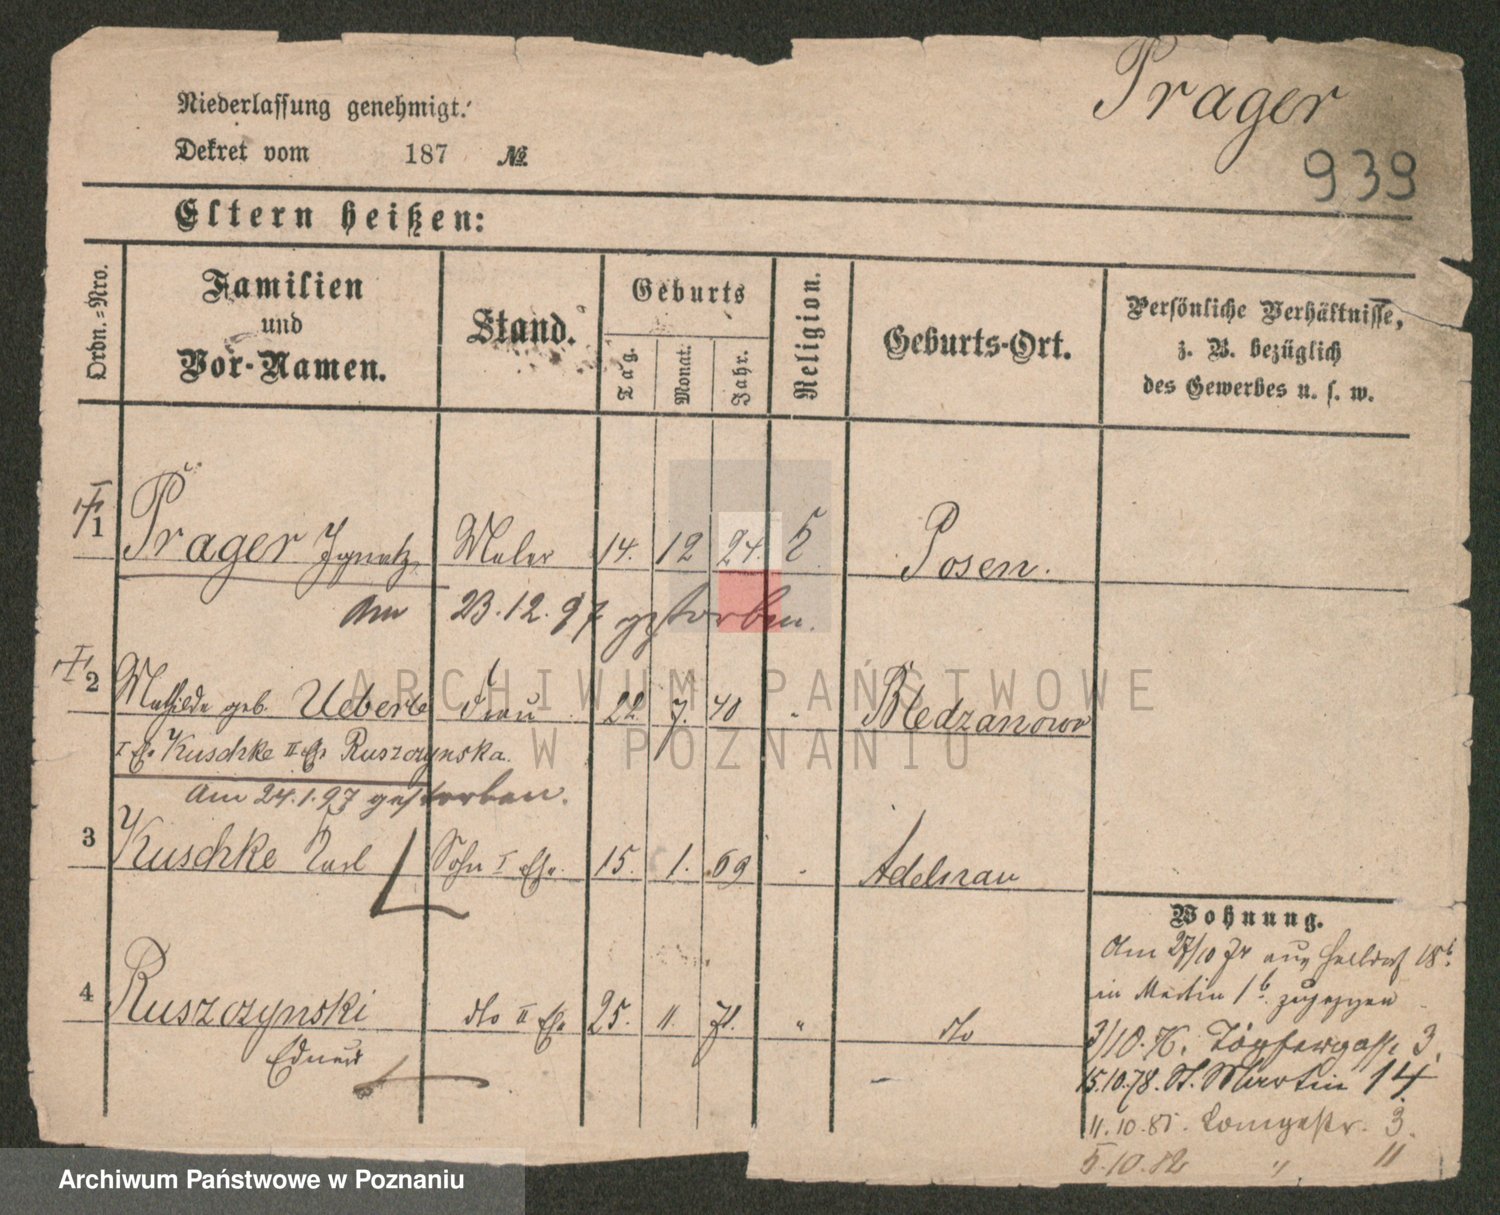 Prager
939
Niederlassung genehmigt:
Dekret vom 187 №
Eltern heißen:
Ordn.-Nro.
Familien und Vor-Namen.
Stand.
Geburts
Tag. Monat. Jahr.
Religion.
Geburts-Ort.
Persönliche Verhältnisse, z. B. bezüglich des Gewerbes u. s. w.
1 Prager Ignatz Maler 14. 12 24. Posen.
Am 23.12.97 gestorben.
2 Mathilde geb. Ueberle Frau 22. 7. 40 " Bledzanowo
I Eh. Kuschke II Eh. Ruszczynska.
Am 24.1.97 gestorben.
3 Kuschke Karl Sohn I Eh. 15. 1. 69 " Adelnau
4 Ruszczynski dto II Eh. 25. 11. 71. " dto
Eduard
Wohnung.
Am 27/10 aus Halldorf 18b.
in Martin 1b. zugezogen
3/10.76. Töpfergasse 3.
15.10.78. St. Martin 14
11.10.81. Langestr. 3.
5.10.82 " 11
ARCHIWUM PAŃSTWOWE
W POZNANIU
Archiwum Państwowe w Poznaniu